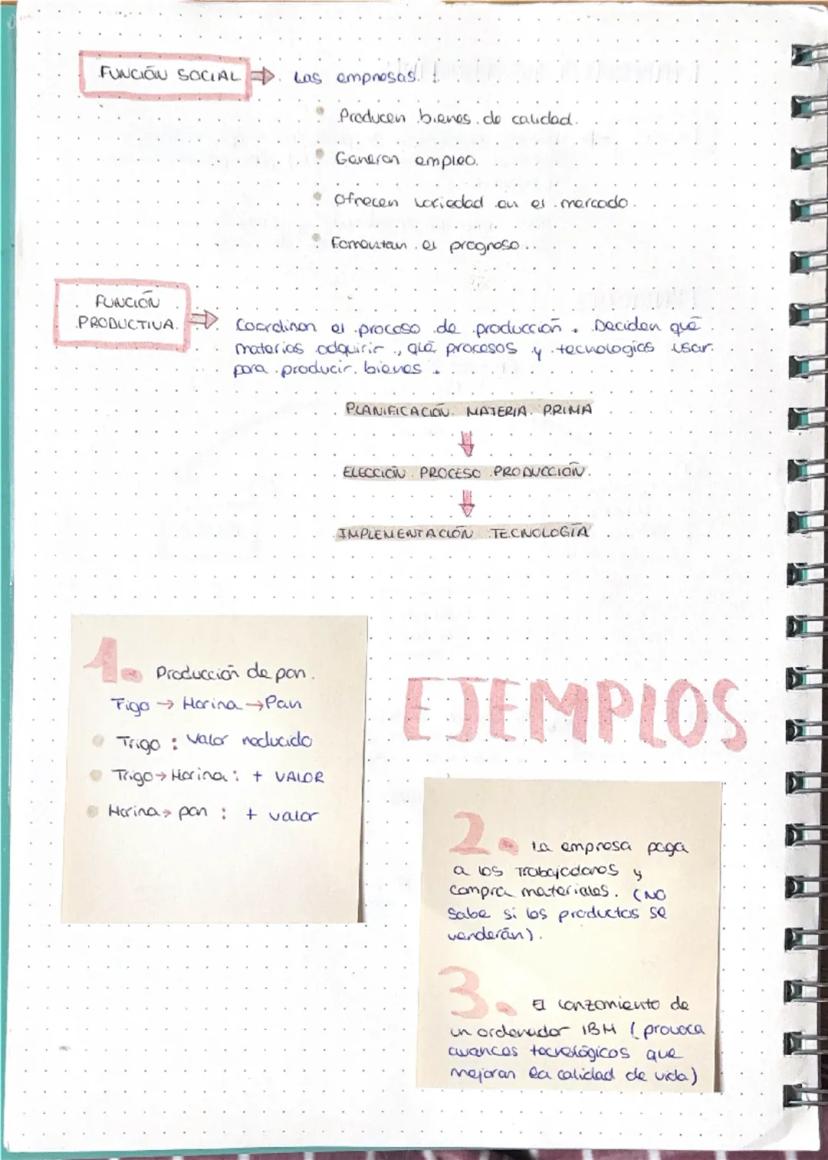 FUNCIÓN SOCIAL ⇒ Las empresas:
• Producen bienes de calidad.
• Generan empleo.
• Ofrecen variedad en el mercado.
• Fomentan el progreso.
FUNCIÓN
PRODUCTIVA ⇒ Coordinan el proceso de producción. Deciden qué
materias adquirir, qué procesos y tecnologías usar
para producir bienes.
PLANIFICACIÓN MATERIA PRIMA
↓
ELECCIÓN PROCESO PRODUCCIÓN
↓
IMPLEMENTACIÓN TECNOLOGÍA
EJEMPLOS
1. Producción de pan.
Trigo → Harina → Pan
• Trigo: valor reducido
• Trigo → Harina: + VALOR
• Harina → pan: + valor
2. La empresa paga
a los trabajadores y
compra materiales. (NO
sabe si los productos se
venderán).
3. El lanzamiento de
un ordenador IBM (provoca
avances tecnológicos que
mejoran la calidad de vida)